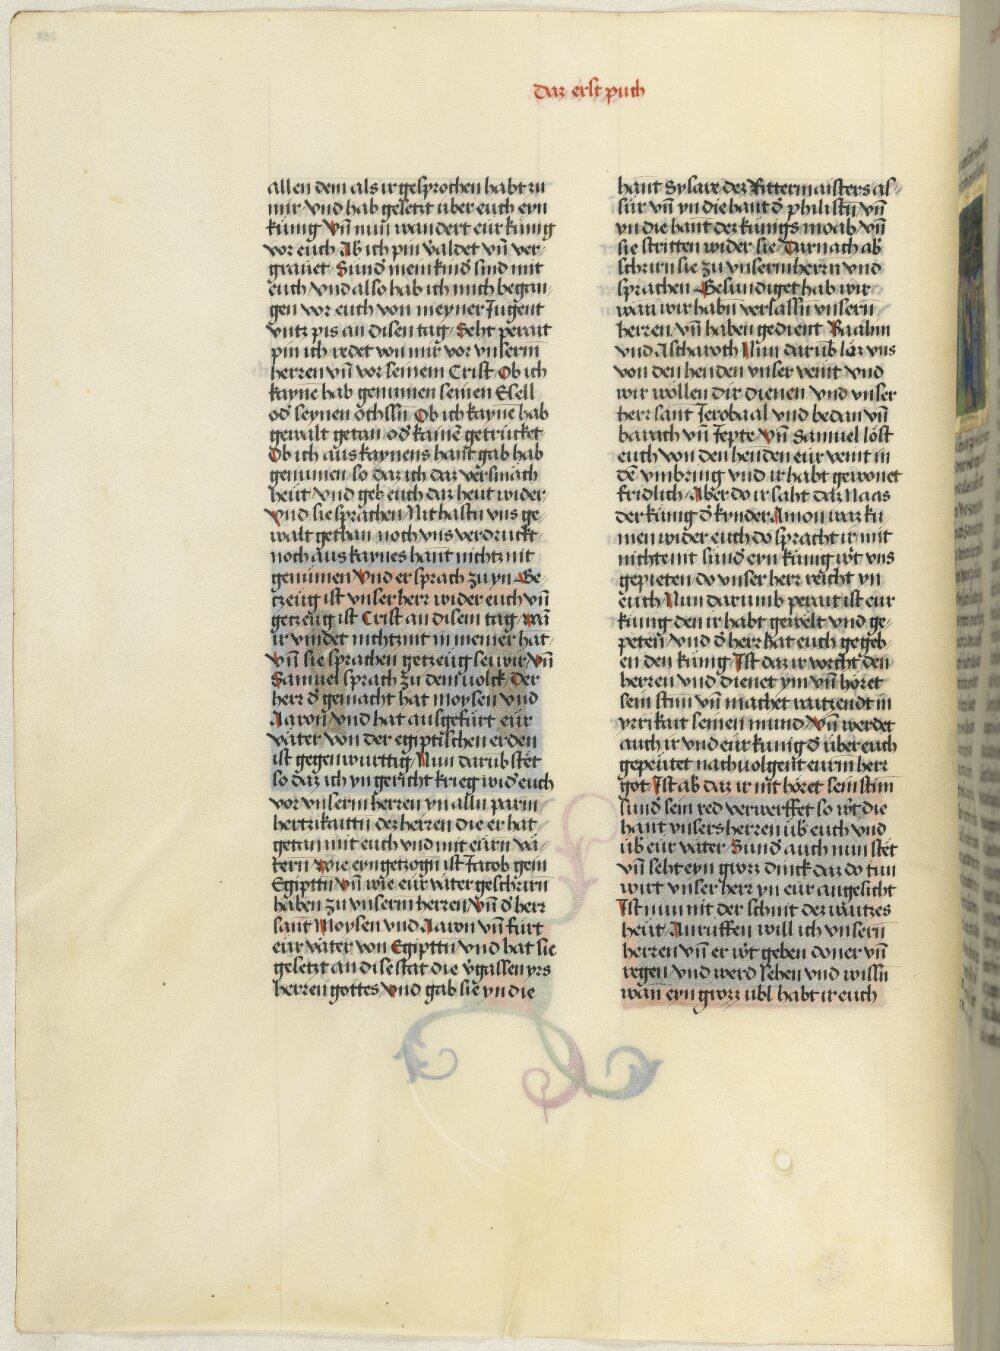 daz erst puch
allen dem als ir gesprochen habt zu
mir vnd hab gesetzt uber euch eyn
kunig Vn̄ nun wandert eur kunig
vor euch Ab ich pin valdet vn̄ ver-
grauet Sund̄ mein kind sind mit
euch vnd also hab ich mich began-
gen vor euch von meyner Jugent
vntz pis an disen tag Seht perait
pin ich redet von mir vor vnserm
herren vn̄ vor seinem Crist Ob ich
kayne hab genumen seinen Esell
od̄ seynen ochssn̄ Ob ich kayne hab
gewalt getan od̄ kaine getrucket
Ob ich aus kaynens hant gab hab
genumen so daz ich daz versmach
heut vnd geb euch daz heut wider
Vnd sie sprachen Nit hastu vns ge-
walt gethan noch vns verdruckt
noch aus kaynes hant nichtz nit
genumen Vnd er sprach zu yn Ge-
tzeug ist vnser herr wider euch vn̄
getzeug ist Crist an disem tag wan̄
ir vindet nichtz nit in meiner hat
Vn̄ sie sprachen getzeug sei wir Vn̄
Samuel sprach zu dem volck Der
herr d̄ gemacht hat Moysen vnd
Aaron vnd hat ausgefurt eur
vater von der egiptischen erden
ist gegenwurttig Nun darub stet
so daz ich yn gericht krieg wid̄ euch
vor vnserm herren yn alln̄ parm
hertzikaittn̄ dez herren die er hat
getan mit euch vnd mit eurn va
tern Wie eyn getzogn̄ ist Jacob gein
Egiptn̄ Vn̄ wie eur vater geschrirn
haben zu vnserm herren Vn̄ d̄ herr
sant Moysen vnd Aaron vn̄ furt
eur vater von Egiptn̄ vnd hat sie
gesetzt an dise stat die v̄gassen yrs
herren gottes Vnd gab sie yn die
hant Sysare dez Rittermaisters as-
sur vn̄ yn die hant d̄ philistn̄ vn̄
yn die hant dez kunigs moab vn̄
sie stritten wider sie Darnach ab̄
schrirn sie zu vnserm herrn vnd
sprachen Gesundiget hab wir
wan wir habn̄ verlassn̄ vnsern
herren vn̄ haben gedient Baalim
vnd Astharoth Nun darub loz vns
von den henden vnser veint vnd
wir wollen dir dienen vnd vnser
herr sant Jerobaal vnd bedan vn̄
barach vn̄ Jepte Vn̄ Samuel lost
euch von den henden eur veint in
dē vmbring vnd ir habt gewonet
fridlich Aber do ir saht daz Naas
der kunig d̄ kynder Amon waz ku
men wider euch do spracht ir mit
nichte nit sund̄ eyn kunig w̄t vns
gepieten do vnser herr reicht yn
euch Nun darumb perait ist eur
kunig den ir habt gewelt vnd ge-
peten vnd d̄ herr hat euch gegeb-
en den kunig Ist daz ir vorcht den
herren vnd dienet ym vn̄ horet
sein stim vn̄ machet
seinen mund Vn̄ werdet
auch ir vnd eur kunig d̄ uber euch
gepeutet nachuolgent eurm herr
got Ist ab̄ daz ir nit horet sein stim
sund̄ sein red verwerffet so w̄t die
hant vnsers herren ub̄ euch vnd
ub̄ eur vater Sund̄ auch nun stet
vn̄ seht eyn grozz dinck daz do tun
wirt vnser herr yn eur angesicht
Ist nun nit der schnit dez waitzes
heut Anruffen will ich vnsern
herren vn̄ er w̄t geben doner vn̄
regen vnd werd sehen vnd wissn̄
wan eyn grozz ubl habt ir euch